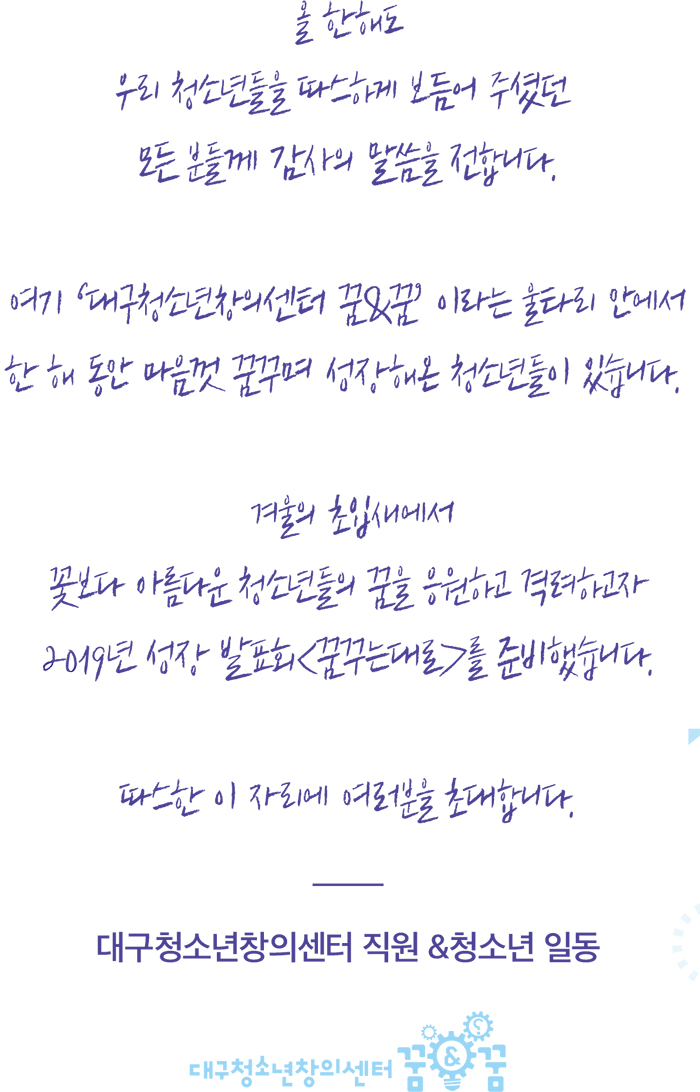 올 한해도
우리 청소년들을 따스하게 보듬어 주셨던
모든 분들께 감사의 말씀을 전합니다.
여기 '대구청소년창의센터 꿈&꿈' 이라는 울타리 안에서
한 해 동안 마음껏 꿈꾸며 성장해온 청소년들이 있습니다.
겨울의 초입새에서
꽃보다 아름다운 청소년들의 꿈을 응원하고 격려하고자
2019년 성장 발표회<꿈꾸는대로>를 준비했습니다.
따스한 이 자리에 여러분을 초대합니다.
대구청소년창의센터 직원 &청소년 일동
대구청소년창의센터 꿈&꿈